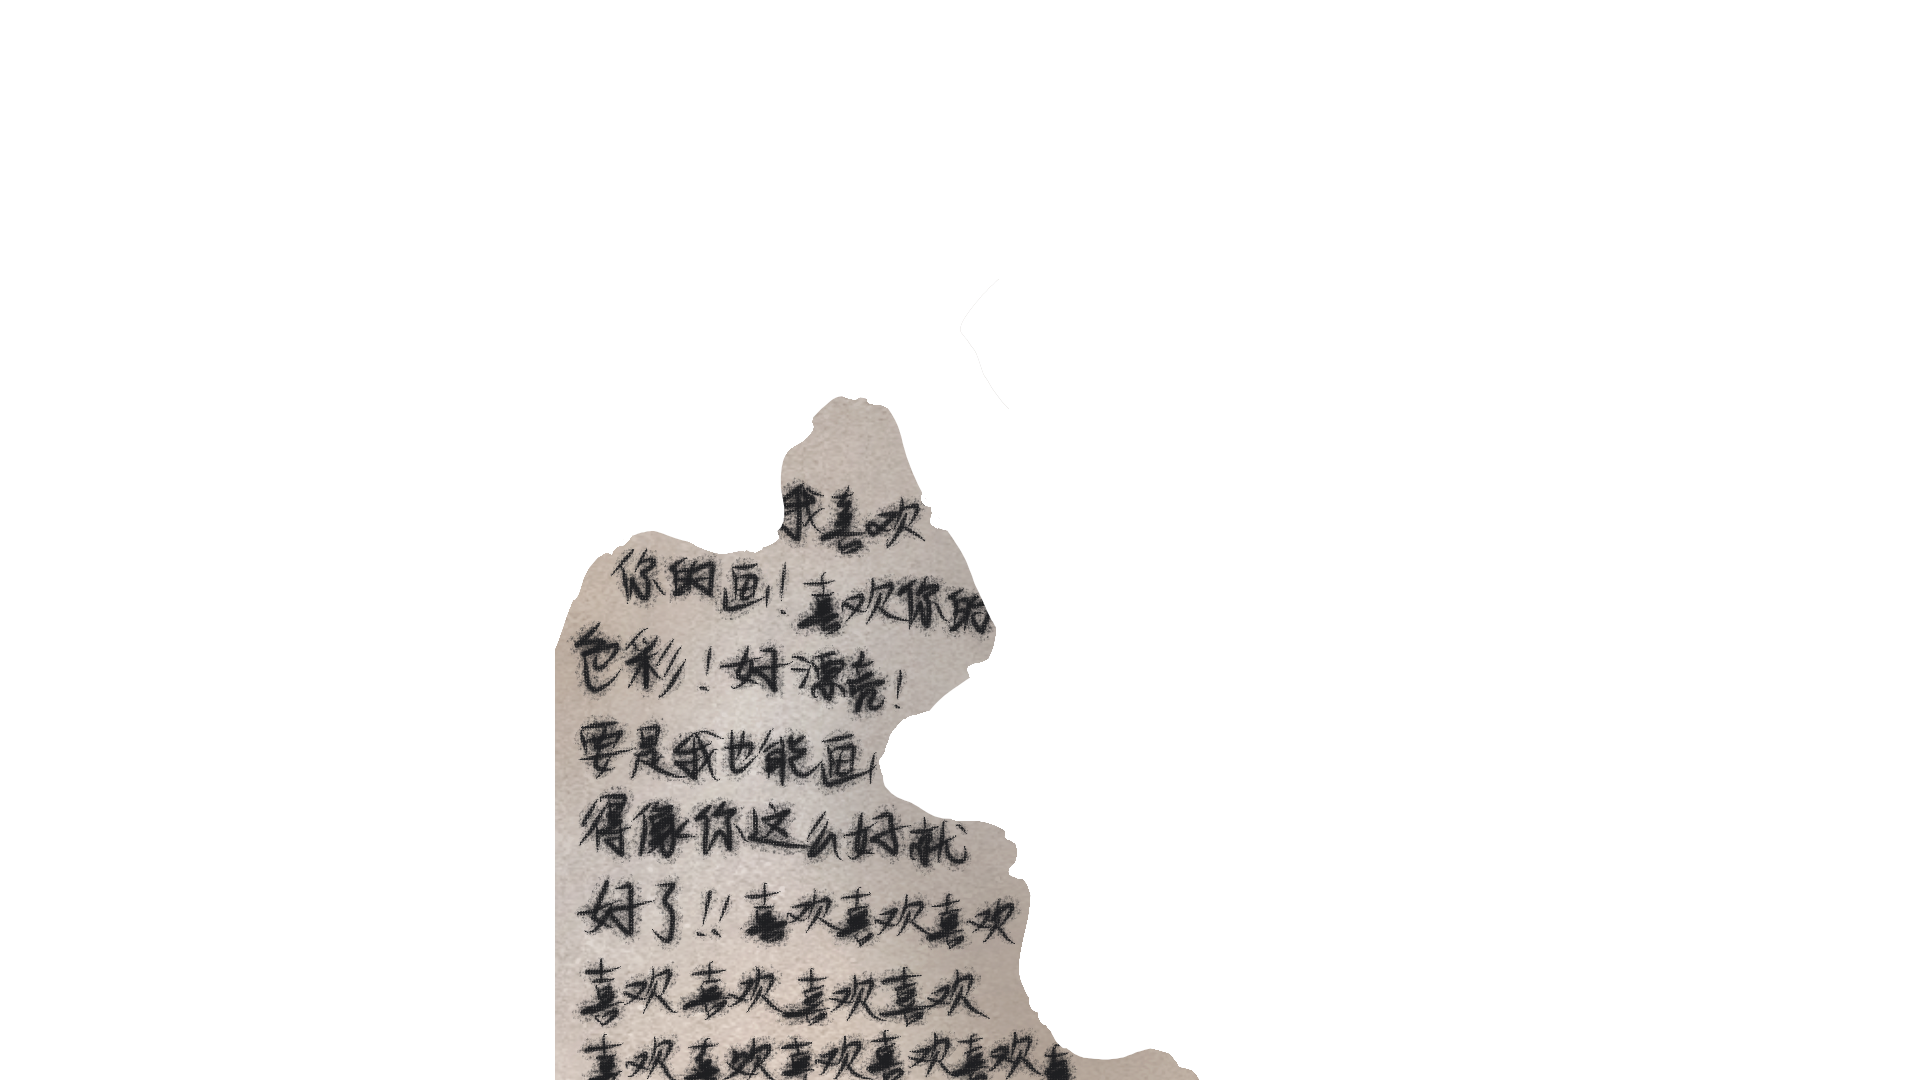 我喜欢
你的画！喜欢你的
色彩！好漂亮！
要是我也能画
得像你这么好就
好了！！喜欢喜欢喜欢
喜欢喜欢喜欢喜欢
喜欢喜欢喜欢喜欢喜欢喜